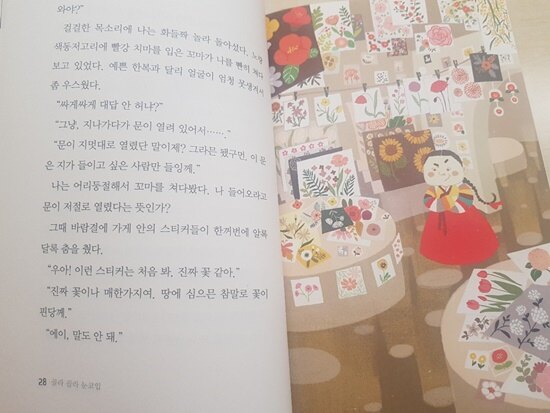 와야?"
걸걸한 목소리에 나는 화들짝 놀라 돌아섰다. 노랑
색동저고리에 빨강 치마를 입은 꼬마가 나를 빤히 쳐다
보고 있었다. 예쁜 한복과 달리 얼굴이 엄청 못생겨서
좀 우스웠다.
"싸게싸게 대답 안 허냐?"
"그냥, 지나가다가 문이 열려 있어서……."
"문이 지멋대로 열렸단 말이제? 그라믄 됐구먼, 이 문
은 지가 들이고 싶은 사람만 들잉께."
나는 어리둥절해서 꼬마를 쳐다봤다. 나 들어오라고
문이 저절로 열렸다는 뜻인가?
그때 바람결에 가게 안의 스티커들이 한꺼번에 알록
달록 춤을 췄다.
"우아! 이런 스티커는 처음 봐. 진짜 꽃 같아."
"진짜 꽃이나 매한가지여. 땅에 심으믄 참말로 꽃이
핀당께."
"에이, 말도 안 돼."
28 골라 골라 눈코입